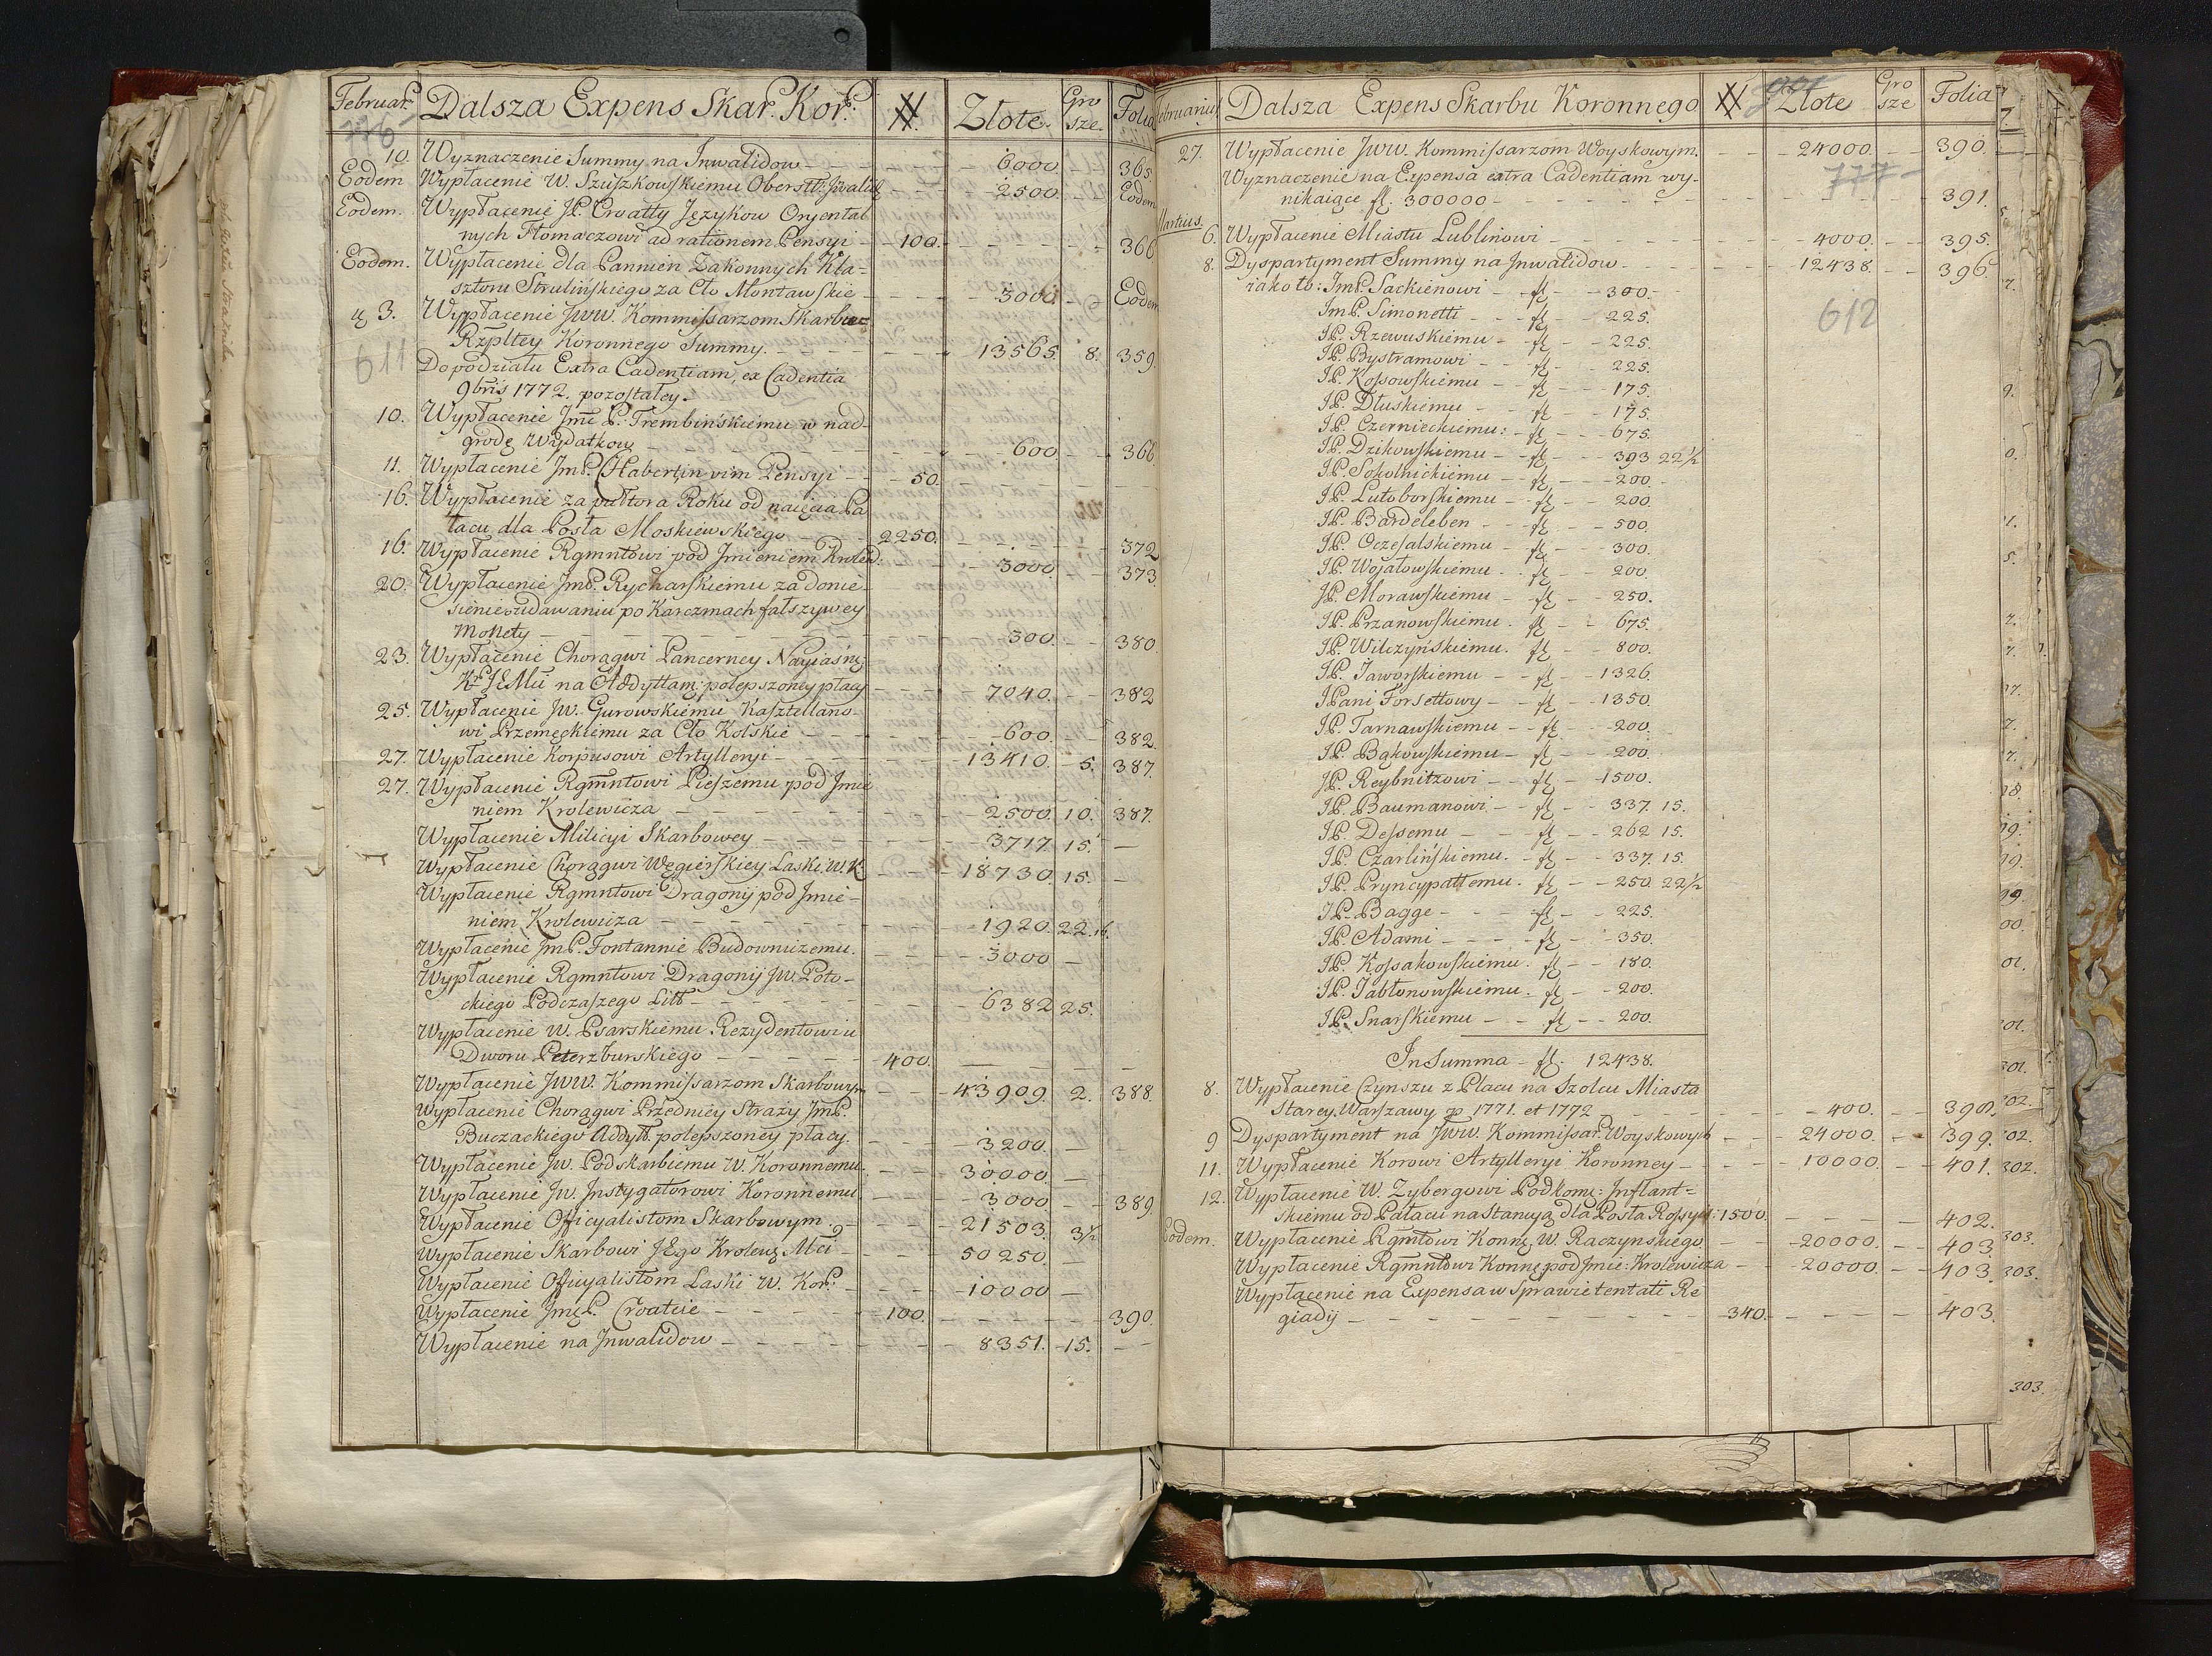 Februar. Dalsza Expens Skar. Kor. # Złote. Gro sze. Folia
776
10. Wyznaczenie Summy na Inwalidow - - - 6000. - 365.
Eodem Wypłacenie W. Szuszkowskiemu Oberszt: Inwalid - - - 2500. - Eodem
Eodem. Wypłacenie JP. Crvatty Językow Oryental
nych Tłomaczowi ad rationem Pensyi - - 100. - - - 366
Eodem. Wypłacenie dla Pannien Zakonnych Kla=
sztoru Strulińskiego za Cło Montawskie - - - 3000. - Eodem
3. Wypłacenie JWW. Kommissarzom Skarbu=
Rzpltey Koronnego Summy. - - - 13565. 8. 359.
611
Do podziału Extra Cadentiam, ex Cadentia
9bris 1772. pozostałey.
10. Wypłacenie Jmć P. Trembińskiemu w nad-
grodę Wydatkow - - - 600. - 366.
11. Wypłacenie JmP. Habert in vim Pensyi - - 50. - - -
16. Wypłacenie za pułtora Roku od naięcia Pa
łacu dla Posła Moskiewskiego - - 2250. - - - 372
16. Wypłacenie Rgmntowi pod Jmieniem Krolew. - - - 3000. - 373.
20. Wypłacenie JmP. Rycharskiemu za donie-
sienie o udawaniu po Karczmach fałszywey
Monety - - - 300. - 380.
23. Wypłacenie Chorągwi Pancerney Nayiaśn:
Kr. JEMci na Addyttam: polepszoney płacy - - - 7040. - 382
25. Wypłacenie JW. Gurowskiemu Kasztellano-
wi Przemęckiemu za Cło Kolskie - - - 600. - 382.
27. Wypłacenie Korpusowi Artylleryi - - - 13410. 5. 387.
27. Wypłacenie Rgmntowi Pieszemu pod Jmie
niem Krolewicza - - - 2500. 10. 387.
Wypłacenie Milicyi Skarbowey - - - 3717. 15. -
Wypłacenie Chorągwi Węgierskiey Laski. W. K. - - - 18730. 15. -
Wypłacenie Rgmntowi Dragonij pod Jmie-
niem Krolewicza - - - 1920. 22.
Wypłacenie JmP. Fontannie Budowniczemu. - - - 3000. -
Wypłacenie Rgmntowi Dragonij JW. Poto-
ckiego Podczaszego Litt - - - 6382 25.
Wypłacenie W. Psarskiemu Rezydentowi u
Dworu Peterzburskiego - - - 400. - - -
Wypłacenie JWW. Kommissarzom Skarbowym - - - 43909. 2. 388.
Wypłacenie Chorągwi Przedniey Straży JmP.
Buczackiego Addytt. polepszoney płacy. - - - 3200. -
Wypłacenie JW. Podskarbiemu W. Koronnemu - - - 30000. -
Wypłacenie JW. Jnstygatorowi Koronnemu - - - 3000. - 389.
Wypłacenie Officyalistom Skarbowym - - - 21503. 3½
Wypłacenie Skarbowi JEgo Krolew. Mci - - - 50250. -
Wypłacenie Officyalistom Laski W. Kor. - - - 10000 -
Wypłacenie JmćP. Crvatcie - - - 100. - - - 390.
Wypłacenie na Jnwalidow - - - 8351. 15. -
Februarius Dalsza Expens Skarbu Koronnego # Złote Gro sze Folia
27. Wypłacenie JWW. Kommissarzom Woyskowym. - - 24000. - 390.
777
Wyznaczenie na Expensa extra Cadentiam wy-
nikaiące fl. 300000 - - - 391.
Martius.
6. Wypłacenie Miastu Lublinowi - - - 4000. - 395.
8. Dyspartyment Summy na Jnwalidow - - - 12438. - 396.
iako to: JmP. Sackienowi - fl - 300.
612
JmP. Simonetti - fl - 225.
JP. Rzewuskiemu - fl - 225.
JP. Bystramowi - fl - 225.
JP. Kossowskiemu - fl - 175.
JP. Dłuskiemu - fl - 175.
JP. Czernieckiemu: - fl - 675.
JP. Dzikowskiemu - fl - 393 22½
JP. Sokolnickiemu - fl - 200.
JP. Lutoborskiemu - fl - 200
JP. Bardeleben - fl - 500.
JP. Oczesalskiemu - fl - 300.
JP. Wojatowskiemu - fl - 200.
JP. Morawskiemu - fl - 250.
JP. Przanowskiemu. fl - 675.
JP. Wilczyńskiemu. fl - 800.
JP. Jaworskiemu - fl - 1326.
JPani Forsettowy - fl - 1350.
JP. Tarnawskiemu - fl - 200.
JP. Bąkowskiemu - fl - 200.
JP. Reybnitzowi - fl - 1500.
JP. Baumanowi - fl - 337. 15.
JP. Dessemu - fl - 262 15.
JP. Czarlińskiemu. - fl - 337. 15.
JP. Pryncypattemu. fl - 250 22½
JP. Bagge - fl - 225.
JP. Adami - fl - 350.
JP. Kossakowskiemu. fl - 180.
JP. Jabłonowskiemu. fl - 200.
JP. Snarskiemu - fl - 200.
In Summa - fl. 12438.
8. Wypłacenie Czynszu z Placu na Szolcu Miasta
Starey Warszawy p 1771. et 1772 - - - 400. - 398.
9 Dyspartyment na JWW. Kommissar: Woyskowych - - 24000. - 399.
11. Wypłacenie Korowi Artylleryi Koronney - - - 10000. - 401.
12. Wypłacenie W. Zybergowi Podkom: Jnflant=
skiemu od Pałacu na Stancyą dla Posła Rossyi: 1500. - - - 402.
Eodem. Wypłacenie Rgmtowi Konn: W. Raczynskiego - - 20000. - 403.
Wypłacenie Rgmntowi Konn: pod Jmie: Krolewicza - - 20000. - 403.
Wypłacenie na Expensa w Sprawie tentati Re
giadij - - - 340. - - - 403.
303.